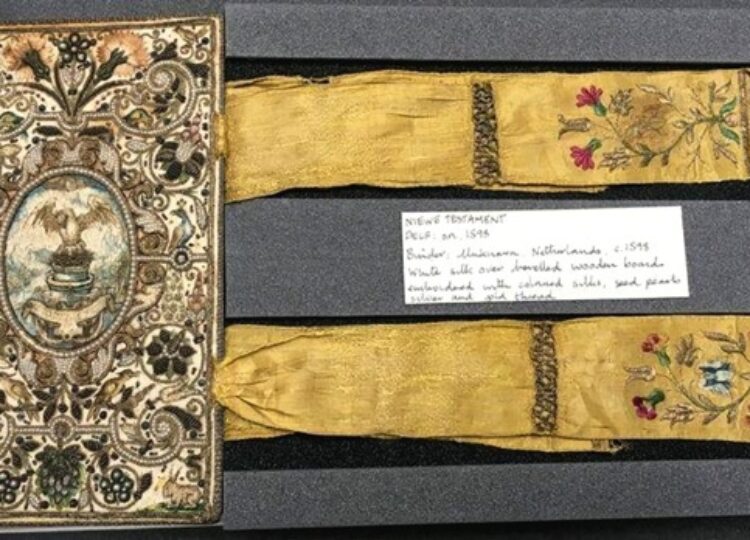 NIEWE TESTAMENT
DELF: s.n., 1598
Binder: Unknown, Netherlands, c.1598
White silk over bevelled wooden boards
embroidered with coloured silks, seed pearls
silver and gold thread